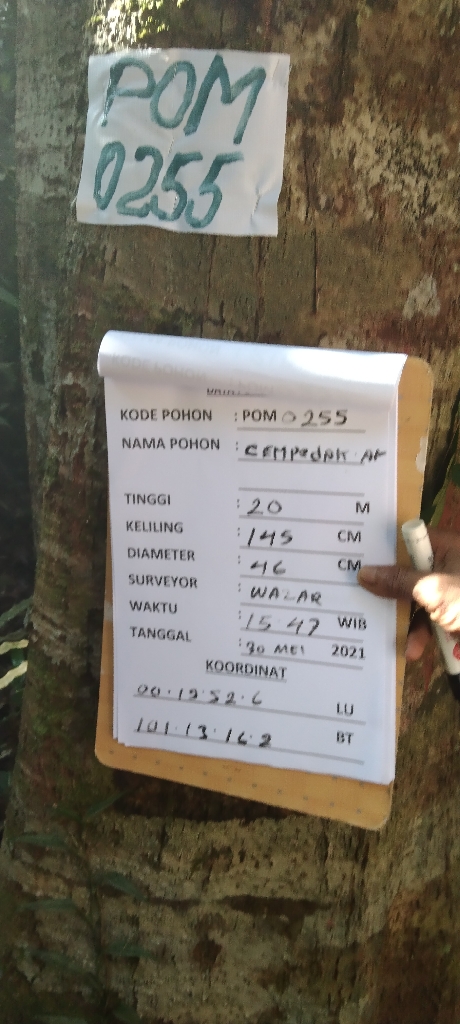 POM
0255
KODE POHON : POM 0255
NAMA POHON : CEMPEDAK AF
TINGGI : 20 M
KELILING : 145 CM
DIAMETER : 46 CM
SURVEYOR : WALAR
WAKTU : 15 47 WIB
TANGGAL : 30 MEI 2021
KOORDINAT
00.19.52.6 LU
101.13.16.2 BT